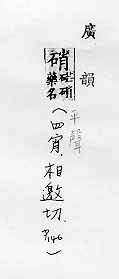 廣韻
硝硭硝藥名(四宵．相邀切．P.146)
平聲